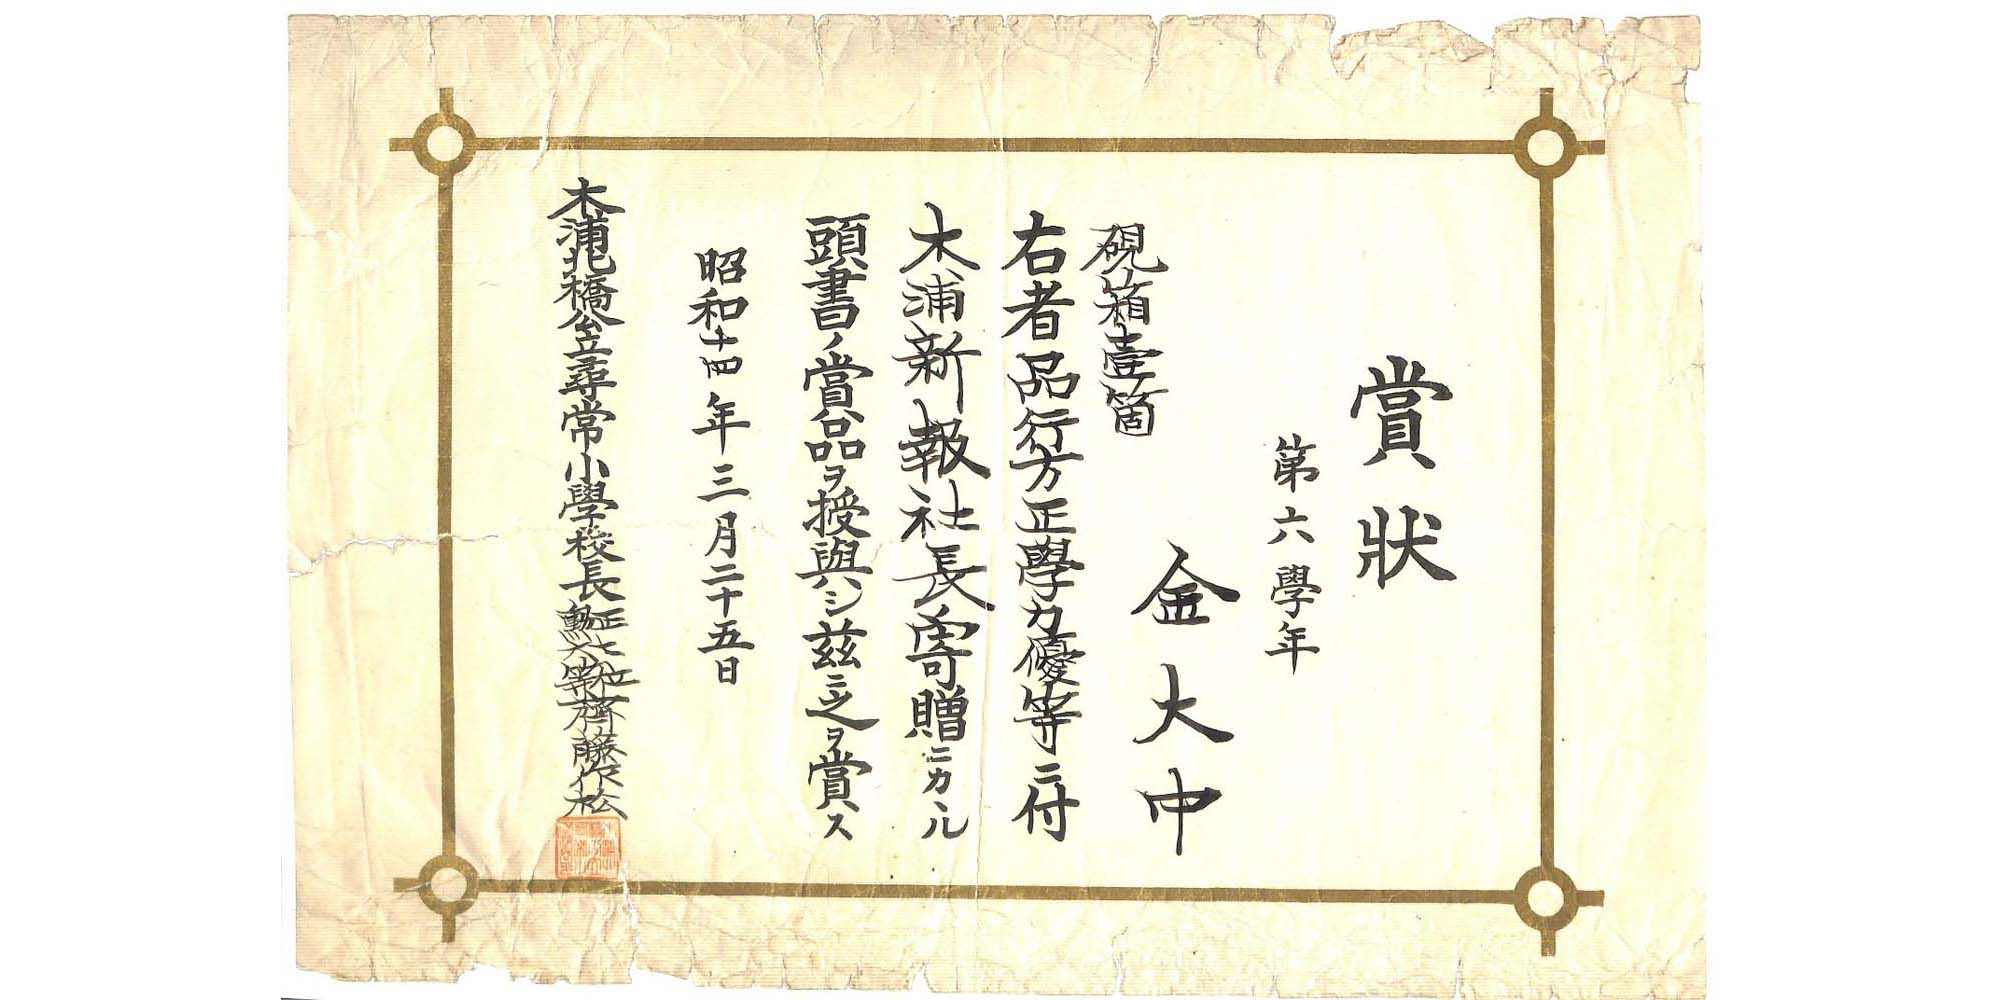 賞狀
第六學年
金大中
硯箱壹箇
右者品行方正學力優等ニ付
木浦新報社長寄贈ニカヽル
頭書ノ賞品ヲ授與シ茲ニ之ヲ賞ス
昭和十四年三月二十五日
木浦北橋公立尋常小學校長正七位勳六等齊藤作松